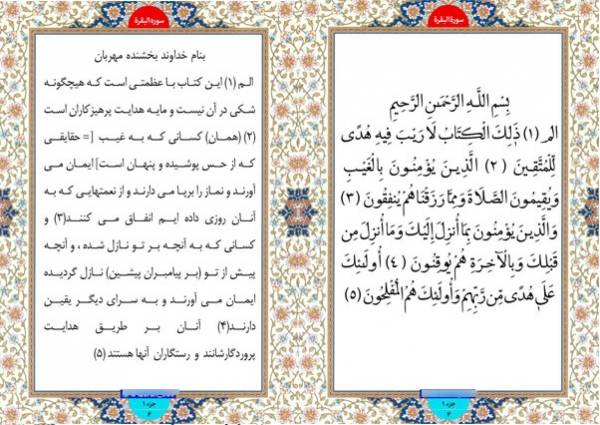 سورة البقرة
بِسْمِ اللَّهِ الرَّحْمَنِ الرَّحِيمِ
الم (۱) ذَٰلِكَ الْكِتَابُ لَا رَيْبَ فِيهِ هُدًى
لِّلْمُتَّقِينَ (۲) الَّذِينَ يُؤْمِنُونَ بِالْغَيْبِ
وَيُقِيمُونَ الصَّلَاةَ وَمِمَّا رَزَقْنَاهُمْ يُنفِقُونَ (۳)
وَالَّذِينَ يُؤْمِنُونَ بِمَا أُنزِلَ إِلَيْكَ وَمَا أُنزِلَ مِن
قَبْلِكَ وَبِالْآخِرَةِ هُمْ يُوقِنُونَ (٤) أُولَئِكَ
عَلَىٰ هُدًى مِّن رَّبِّهِمْ وَأُولَئِكَ هُمُ الْمُفْلِحُونَ (۵)
جزء ۱
سورة البقرة
بنام خداوند بخشنده مهربان
الم (۱) این کتاب با عظمتی است که هیچگونه
شکی در آن نیست و مایه هدایت پرهیزکاران است
(۲) (همان) کسانی که به غیب [= حقایقی
که از حس پوشیده و پنهان است] ایمان می
آورند و نماز را برپا می دارند و از نعمتهایی که به
آنان روزی داده ایم انفاق می کنند(۳) و
کسانی که به آنچه بر تو نازل شده ، و آنچه
پیش از تو (بر پیامبران پیشین) نازل گردیده
ایمان می آورند و به سرای دیگر یقین
دارند(۴) آنان بر طریق هدایت
پروردگارشانند و رستگاران آنها هستند (۵)
جزء ۱